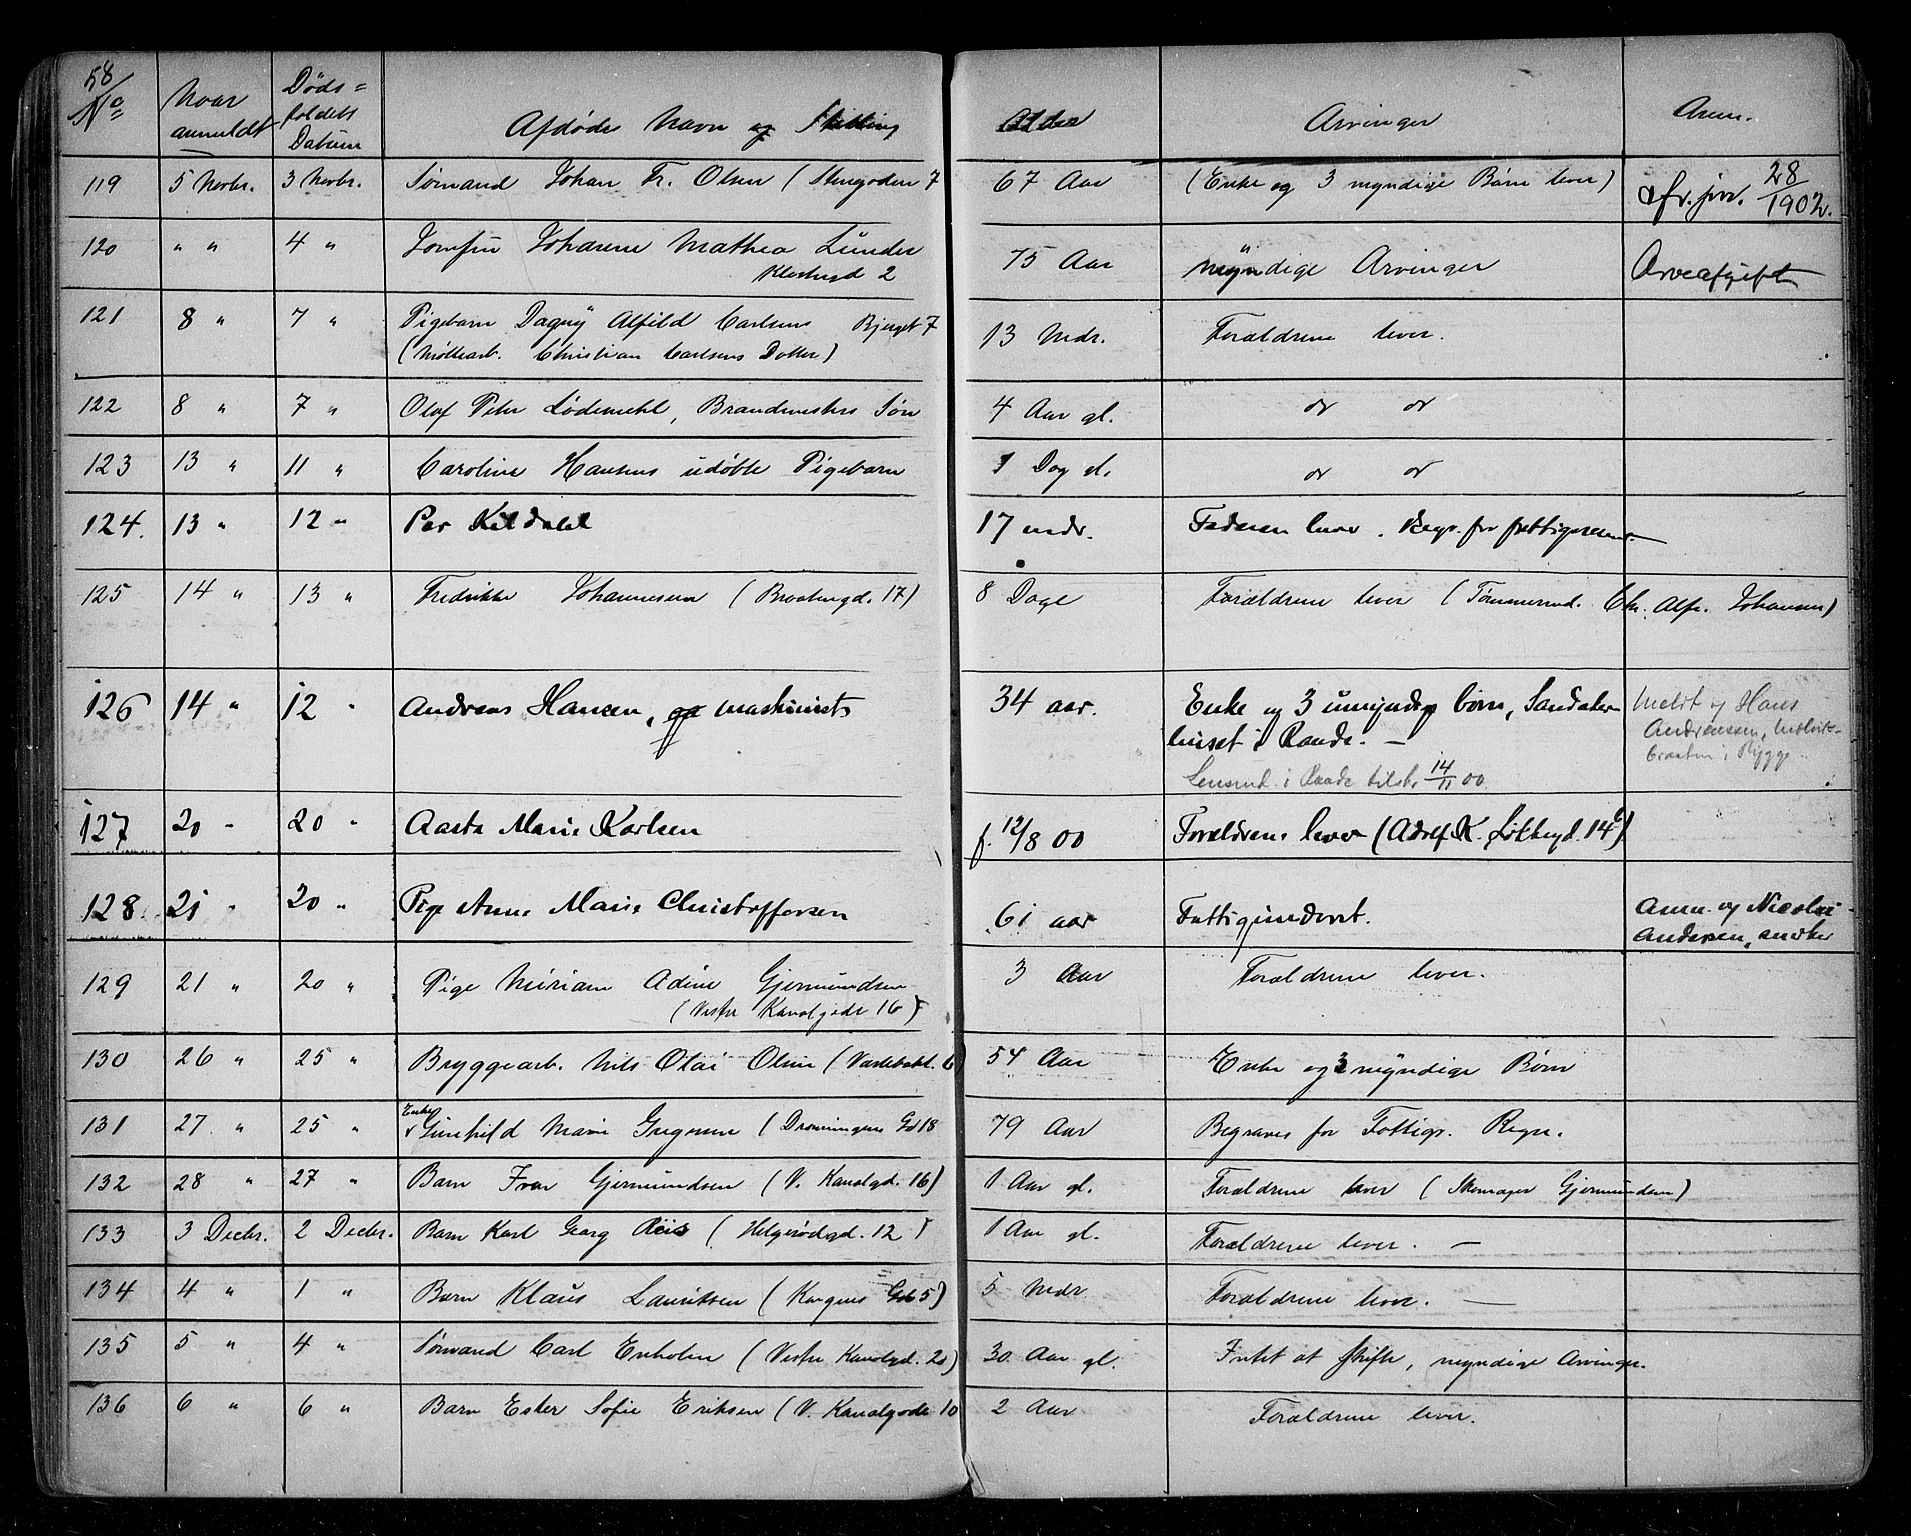 58
No Naar anmeldt Døds= faldets Datum Afdødes Navn og Stilling Alder Arvinger Anm.
119 5 Novbr. 3 Novbr. Sømand Johan Fr. Olsen (Stengaden 7 67 Aar (Enke og 3 myndige Børn lever) 28/1902.
120 " " 4 " Jomfru Johanne Mathea Lunder 75 Aar myndige Arvinger Arveafgift
2
121 8 " 7 " Pigebarn Dagny Alfild Carlsens Bjerget 7 13 Mdr. Forældrene lever.
(Møllearb. Christian Carlsens Datter)
122 8 " 7 " Olaf Petr Lødemehl, Brandmesters Søn 4 Aar gl. do do
123 13 " 11 " Caroline Hansens udøbte Pigebarn 1 Dag gl. do do
124. 13 " 12 " Per Kildahl 17 mdr. Faderen lever. Begr. for fattigvæsenet
125 14 " 13 " Fredrikke Johannesen (Braatengd. 17) 8 Dage Forældrene lever (Tømmermd. Chr. Alfr. Johansen)
126 14 " 12 " Andreas Hansen, maskinists 34 aar. Enke og 3 umyndige børn, Sandaker- Meldt af Hans
huset i Raade. — Andreassen,
Lensmd. i Raade tilskr. 14/11 00 braaten i Rygge
127 20 " 20 " Aasta Marie Karlsen f. 12/8 00 Forældrene lever (Adolf K. 14b)
128. 21 " 20 " Pige Anne Marie Christoffersen 61 aar Fattigunderst. Anm. af Nicolai
Andersen, snedker
129 21 " 20 " Pige Miriam Adine Gjermundsen 3 Aar Forældrene lever.
(Vestre Kanalgade 16)
130 26 " 25 " Bryggearb. Nils Olai Olsen (Varlebakk. 6) 54 Aar Enke og 3 myndige Børn
131 27 " 25 " Enke Gunhild Marie Gregersen (Dronningens Gd 18 79 Aar Begraves for Fattigv. Regn.
132 28 " 27 " Barn Ivar Gjermundsen (V. Kanalgd. 16) 1 Aar gl. Forældrene lever (Skomager Gjermundsen)
133 3 Decbr. 2 Decbr. Barn Karl Georg Riis (Helgerødgd. 12) 1 Aar gl. Forældrene lever. —
134 4 " 1 " Barn Klaus Lauritsen (Kongens Gd 5) 5 Mdr Forældrene lever. —
135 5 " 4 " Sømand Carl Enholm (Vestre Kanalgd. 20) 30 Aar gl. Intet at skifte, myndige Arvinger.
136 6 " 6 " Barn Ester Sofie Eriksen (V. Kanalgade 10 2 Aar Forældrene lever.